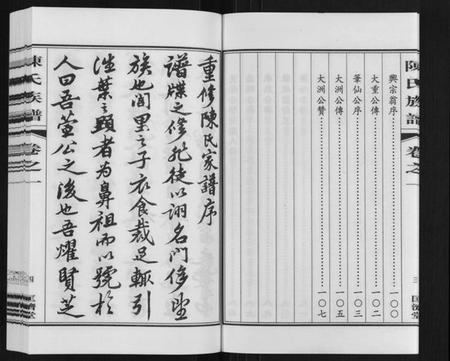 陳氏族譜
卷之一
三
興宗翁序 一〇〇
大重公傳 一〇二
筆仙公序 一〇三
大洲公傳 一〇五
大洲公贊 一〇七
重修陳氏家譜序
譜牒之修非徒以詡名門侈望
族也閭里之子衣食裁足輒引
漢葉之顯者為鼻祖而以號於
人曰吾董公之後也吾耀賢芝
陳氏族譜
卷之一
四